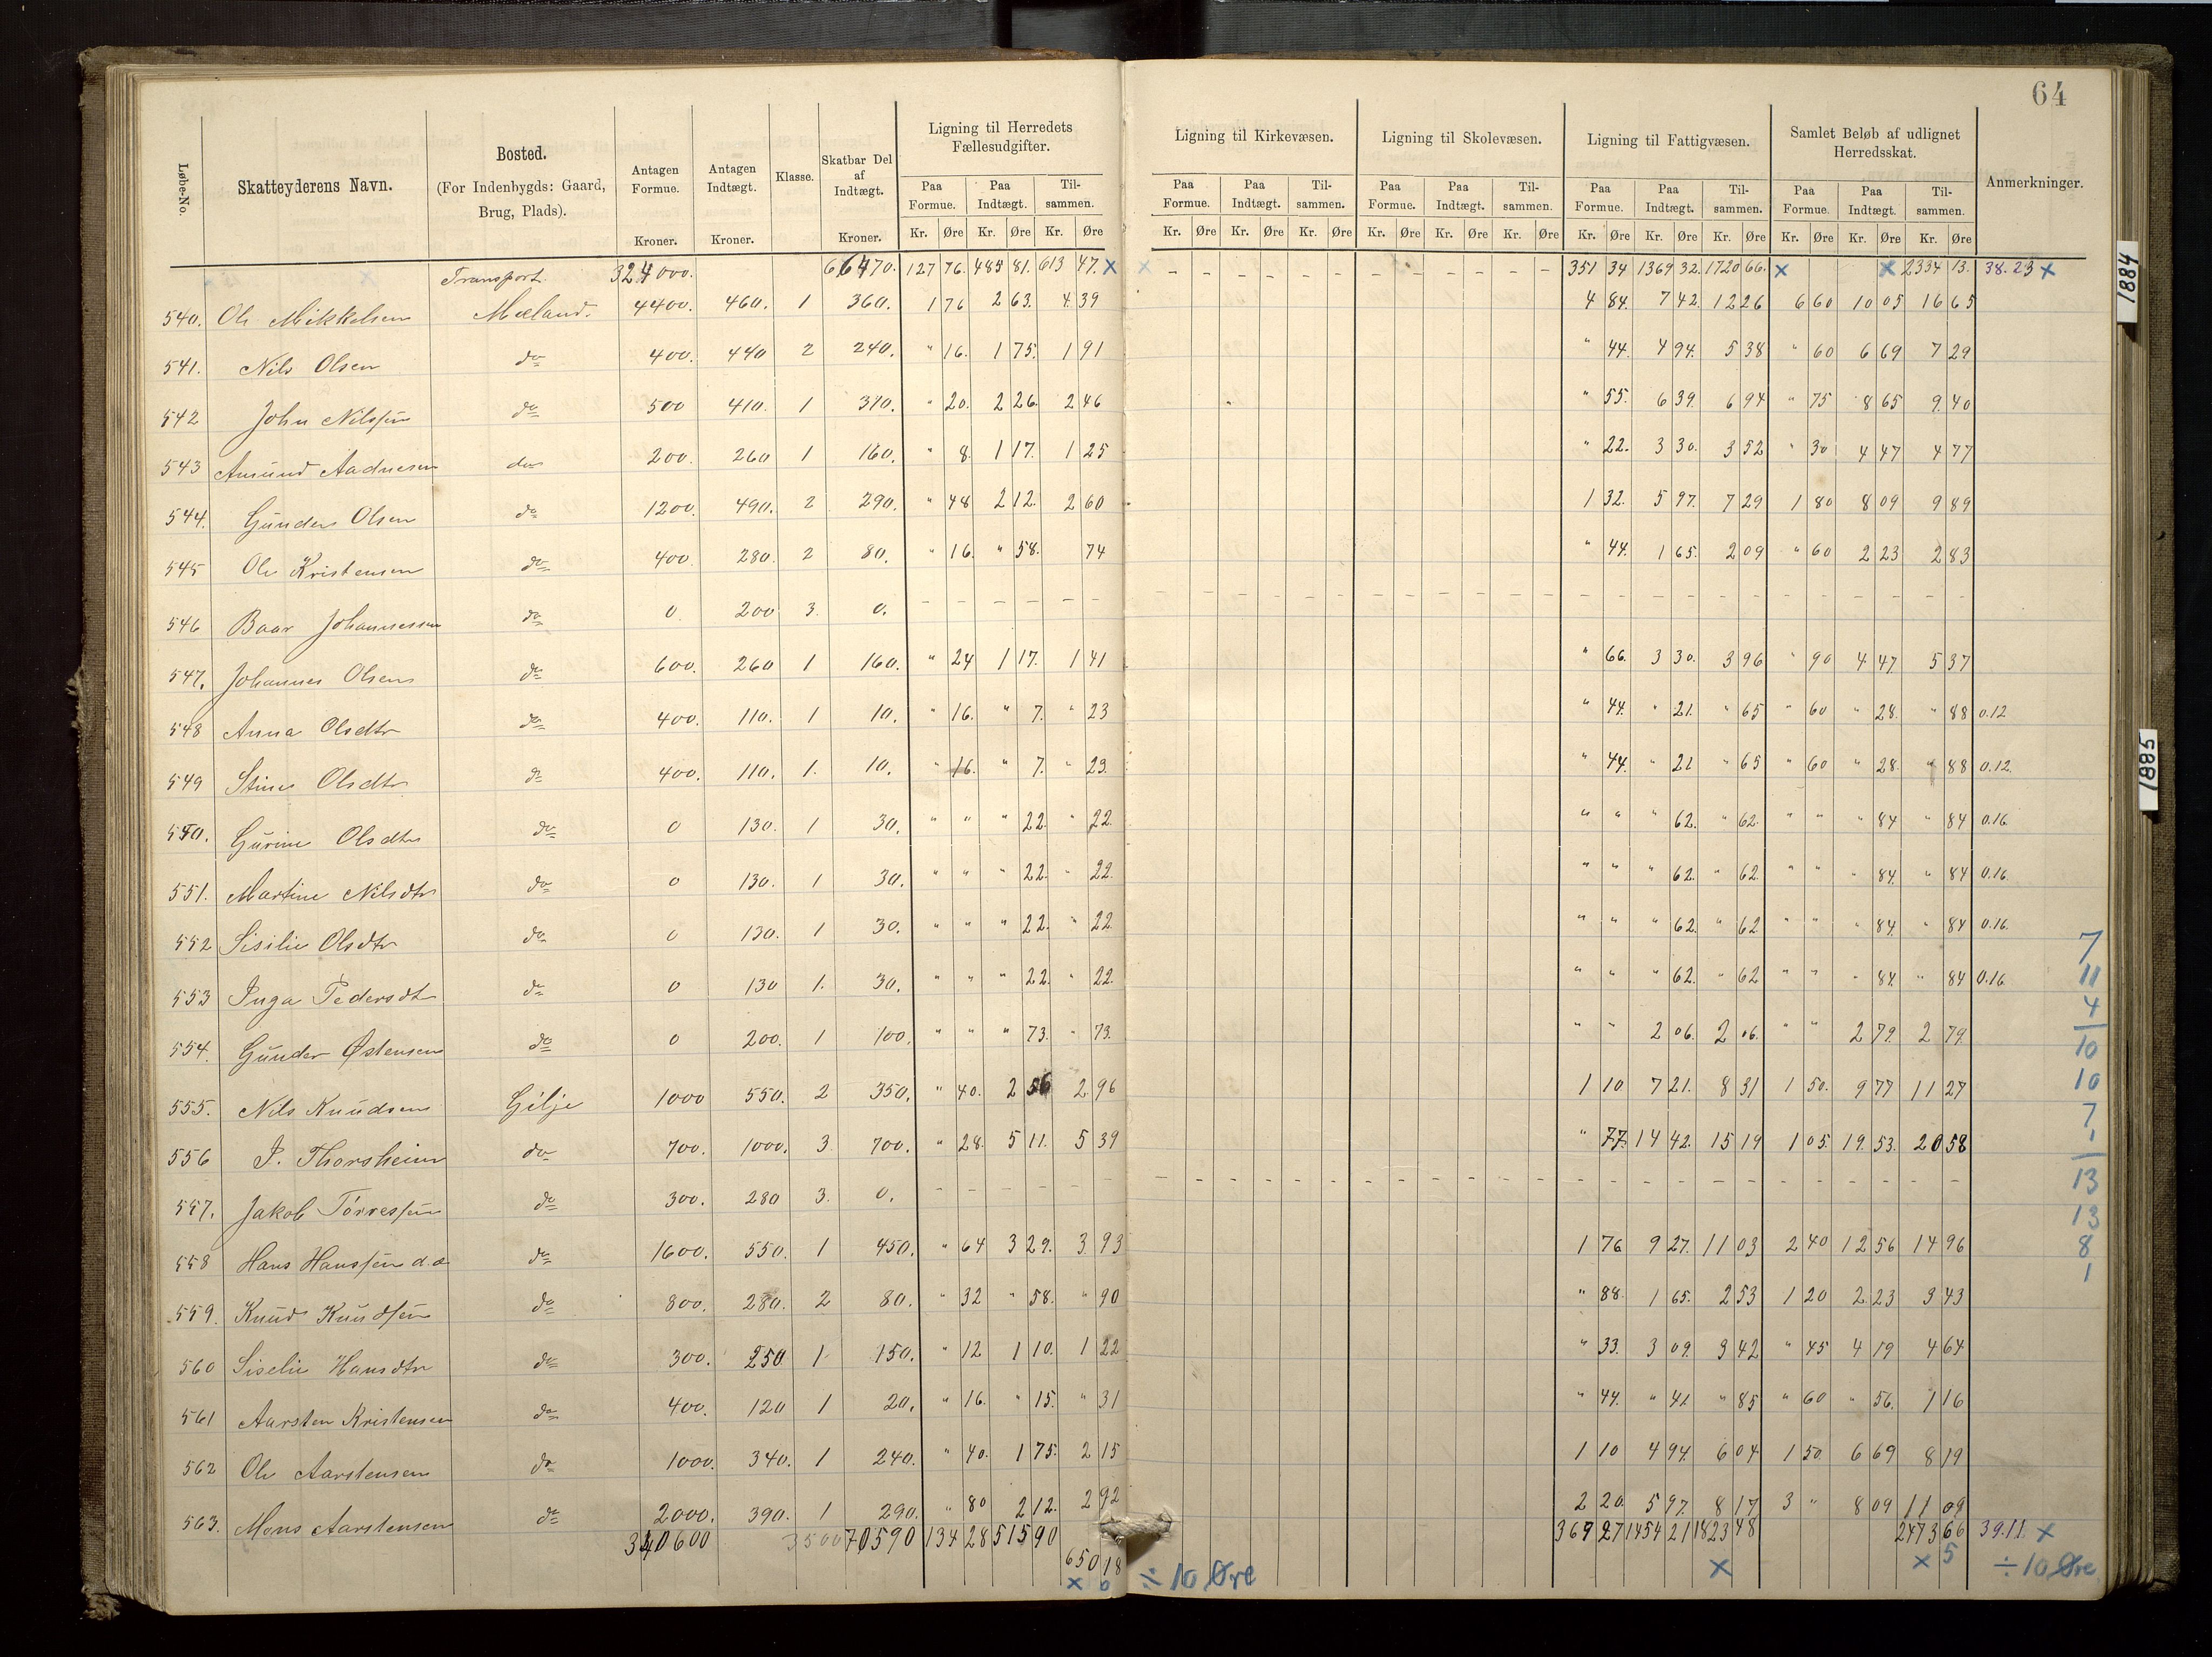 64
Løbe-No. Skatteyderens Navn. Bosted. (For Indenbygds: Gaard, Brug, Plads). Antagen Formue. Kroner. Antagen Indtægt. Kroner. Klasse. Skatbar Del af Indtægt. Kroner. Ligning til Herredets Fællesudgifter. Ligning til Kirkevæsen. Ligning til Skolevæsen. Ligning til Fattigvæsen. Samlet Beløb af udlignet Herredsskat. Anmerkninger.
Paa Formue. Paa Indtægt. Tilsammen. Paa Formue. Paa Indtægt. Tilsammen. Paa Formue. Paa Indtægt. Tilsammen. Paa Formue. Paa Indtægt. Tilsammen. Paa Formue. Paa Indtægt. Tilsammen.
Kr. Øre Kr. Øre Kr. Øre Kr. Øre Kr. Øre Kr. Øre Kr. Øre Kr. Øre Kr. Øre Kr. Øre Kr. Øre Kr. Øre Kr. Øre Kr. Øre Kr. Øre
Transport 324000. 66470. 127 76. 485 81. 613 47. x x - - - - - - - - - - - - 351 34 1369 32. 1720 66. x x 2334 13. 38.23 x
540. Ole Mikkelsen Mæland. 4400. 460. 1 360. 1 76 2 63. 4 39 4 84. 7 42. 12 26 6 60 10 05 16 65
541. Nils Olsen do 400. 440 2 240. " 16. 1 75. 1 91 " 44. 4 94. 5 38 " 60 6 69 7 29
542 John Nilssen do 500 410. 1 310. " 20. 2 26. 2 46 " 55. 6 39. 6 94 " 75 8 65 9 40
543 Amund Aadnesen do 200. 260 1 160. " 8. 1 17. 1 25 " 22. 3 30. 3 52 " 30 4 47 4 77
544. Gunder Olsen do 1200. 490. 2 290. " 48 2 12. 2 60 1 32. 5 97. 7 29 1 80 8 09 9 89
545 Ole Kristensen do 400. 280. 2 80. " 16. " 58. 74 " 44. 1 65. 2 09 " 60 2 23 2 83
546 Baar Johannessen do 0. 200 3. 0. - - - - - -
547. Johannes Olsen do 600. 260 1 160. " 24 1 17. 1 41 " 66. 3 30. 3 96 " 90 4 47. 5 37
548 Anna Olsdtr do 400. 110. 1 10. " 16. " 7. " 23 " 44. " 21. " 65 " 60 " 28. " 88 0.12
549 Stine Olsdtr do 400. 110. 1. 10. " 16. " 7. " 23. " 44. " 21 " 65 " 60 " 28. " 88 0.12.
550. Gurine Olsdtr do 0 130. 1 30. " " " 22. " 22. " " " 62. " 62. " " " 84 " 84 0.16.
551. Martine Nilsdtr do 0 130. 1 30. " " " 22. " 22. " " " 62. " 62. " " " 84. " 84 0.16.
552 Sisilie Olsdtr do 0 130. 1 30. " " " 22. " 22. " " " 62. " 62. " " " 84. " 84 0.16.
553 Inga Pedersdtr do 0 130 1. 30. " " " 22. " 22. " " " 62. " 62 " " " 84. " 84 0.16.
554. Gunder Østensen do 0 200. 1 100. " " " 73. " 73. " " 2 06. 2 06. " " 2 79. 2 79.
555. Nils Knudsen Gilje 1000 550. 2 350. " 40. 2 56 2 96 1 10 7 21. 8 31 1 50. 9 77 11 27
556 I. Thorsheim do 700. 1000. 3. 700. " 28. 5 11. 5 39 " 77. 14 42. 15 19 1 05. 19. 53. 20 58
557. Jakob Tórressen do 300. 280 3. 0. - - - - - -
558 Hans Hanssen d.æ do 1600. 550. 1 450. " 64 3 29. 3 93 1 76. 9 27. 11 03 2 40 12 56 14 96
559. Knud Knudsen do 800. 280. 2 80. " 32 " 58. " 90 " 88. 1 65. 2 53 1 20 2 23 3 43
560 Siselie Hansdtr do 300. 250. 1 150. " 12 1 10. 1 22 " 33. 3 09. 3 42 " 45 4 19 4 64
561 Aarsten Kristensen do 400. 120 1 20. " 16. " 15. " 31 " 44. " 41 " 85 " 60 " 56. 1 16
562 Ole Aarstensen do 1000. 340. 1 240. " 40. 1 75. 2 15 1 10 4 94. 6 04 1 50. 6 69 8 19
563. Mons Aarstensen do 2000. 390. 1 290. " 80 2 12. 2 92 2 20. 5 97. 8 17 3 " 8 09 11 09
340600 3500 70590 134 28 515 90 650 18 369 27 1454 21 1823 48 2473 66 39.11. x
x 0 ÷ 10 Øre x x 5 ÷ 10 Øre
7
11
4
10
10
7
1
13
13
8
1
1884
1885